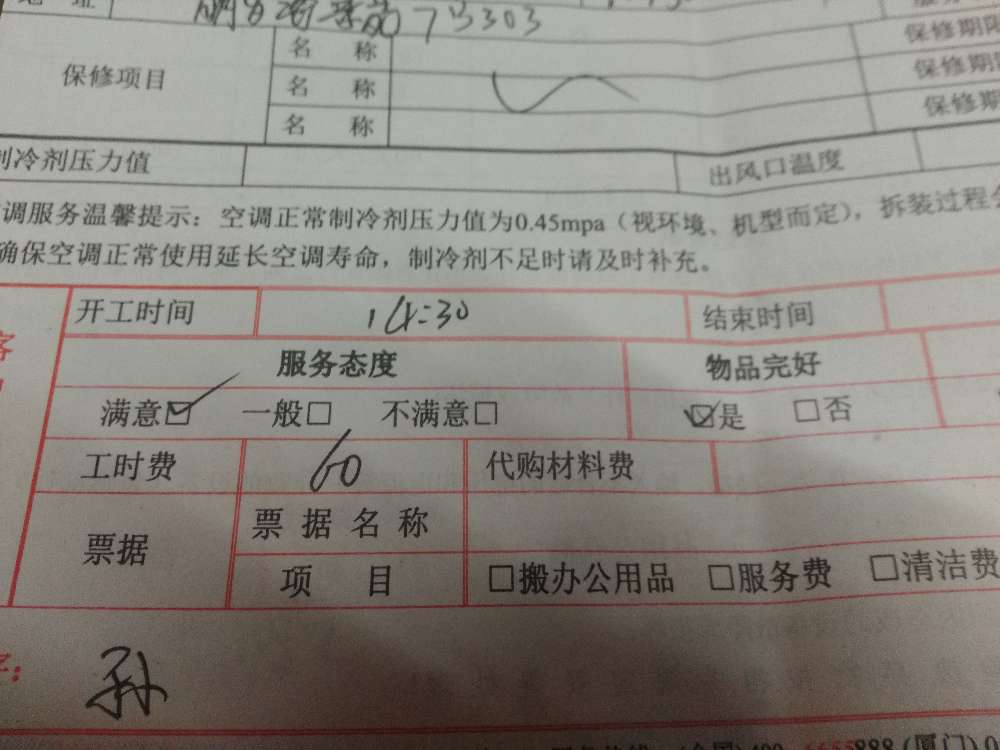 地 址 73303
保修期限
名 称 保修期限
保修项目 名 称 保修期
名 称
制冷剂压力值 出风口温度
调服务温馨提示：空调正常制冷剂压力值为0.45mpa（视环境、机型而定），拆装过程
确保空调正常使用延长空调寿命，制冷剂不足时请及时补充。
开工时间 14:30 结束时间
服务态度 物品完好
满意☑ 一般□ 不满意□ ☑是 □否
工时费 60 代购材料费
票据 票 据 名 称
项 目 □搬办公用品 □服务费 □清洁费
孙